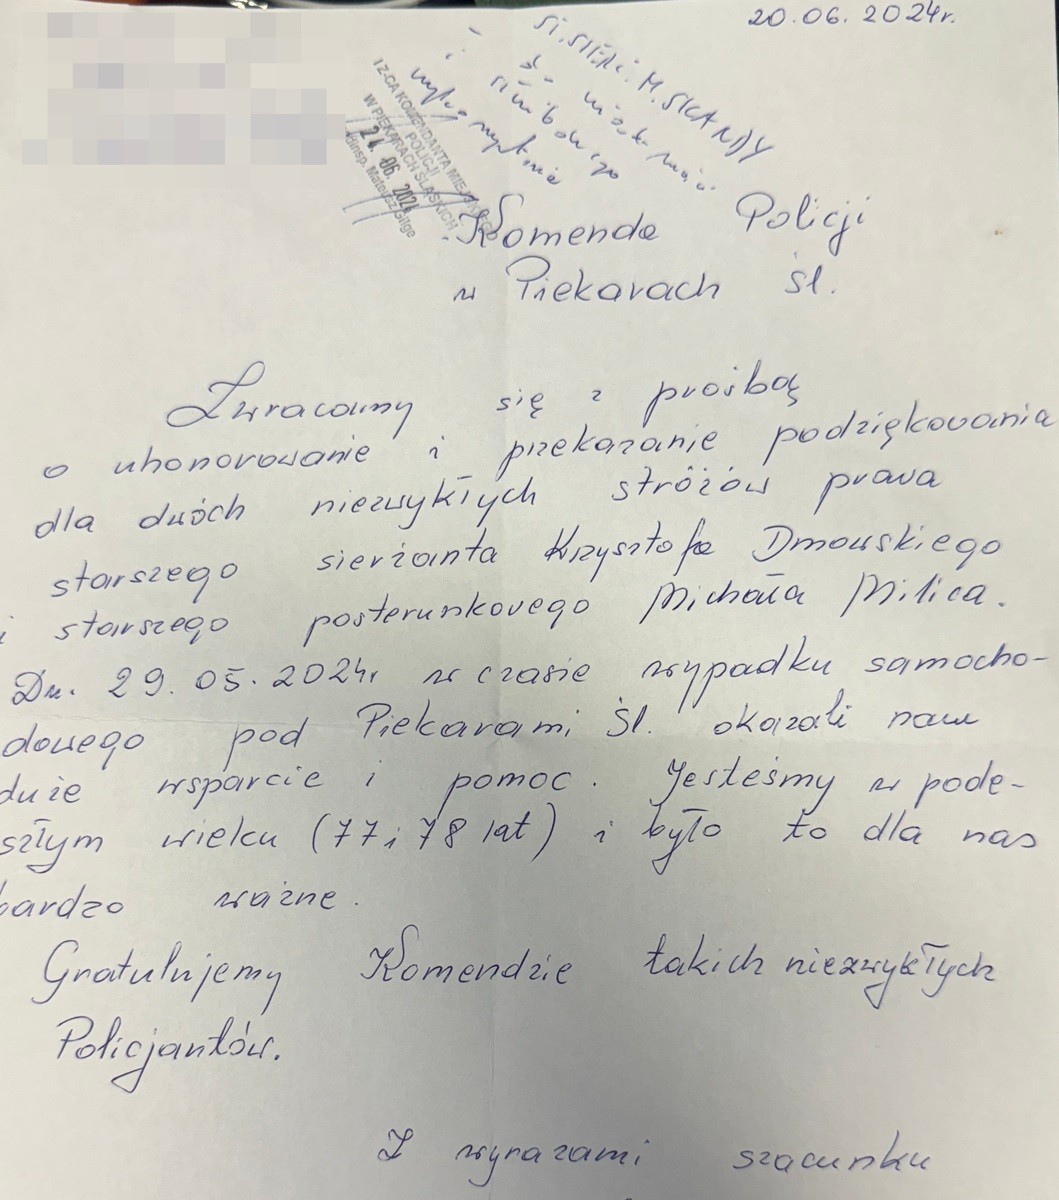 20.06.2024r.
I Z-CA KOMENDANTA MIEJSKIEGO
POLICJI
W PIEKARACH ŚLĄSKICH
24. 06. 2024
Komenda Policji
w Piekarach Śl.
Zwracamy się z prośbą
o uhonorowanie i przekazanie podziękowania
dla dwóch niezwykłych stróżów prawa
starszego sierżanta Krzysztofa Dmowskiego
i starszego posterunkowego Michała Milica.
Dn. 29.05.2024r w czasie wypadku samocho-
dowego pod Piekarami Śl. okazali nam
duże wsparcie i pomoc. Jesteśmy w pode-
szłym wieku (77 i 78 lat) i było to dla nas
bardzo ważne.
Gratulujemy Komendzie takich niezwykłych
Policjantów.
Z wyrazami szacunku